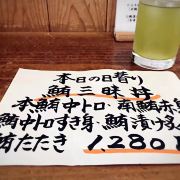 本日の日替り
鮪三昧丼
本鮪中トロ・南鮪赤身
鮪中トロすき身・鮪漬け
鮪たたき 1,280円